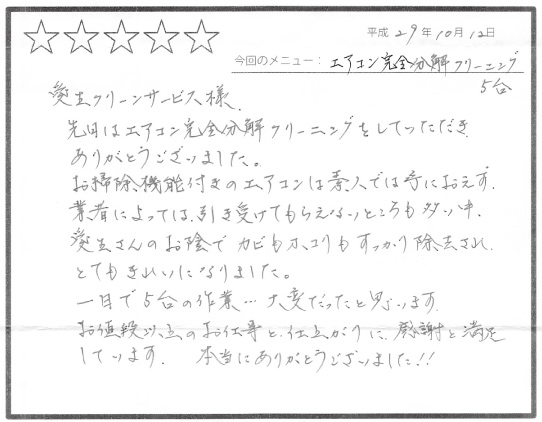 平成 29年 10月 12日
今回のメニュー： エアコン完全分解クリーニング
5台
愛生クリーンサービス様.
先日はエアコン完全分解クリーニングをしていただき
ありがとうございました。
お掃除機能付きのエアコンは素人では手におえず.
業者によっては、引き受けてもらえないところも多い中.
愛生さんのお陰でカビもホコリもすっかり除去され
とてもきれいになりました。
一日で5台の作業… 大変だったと思います.
お値段以上のお仕事と、仕上がりに、感謝と満足
しています. 本当にありがとうございました!!